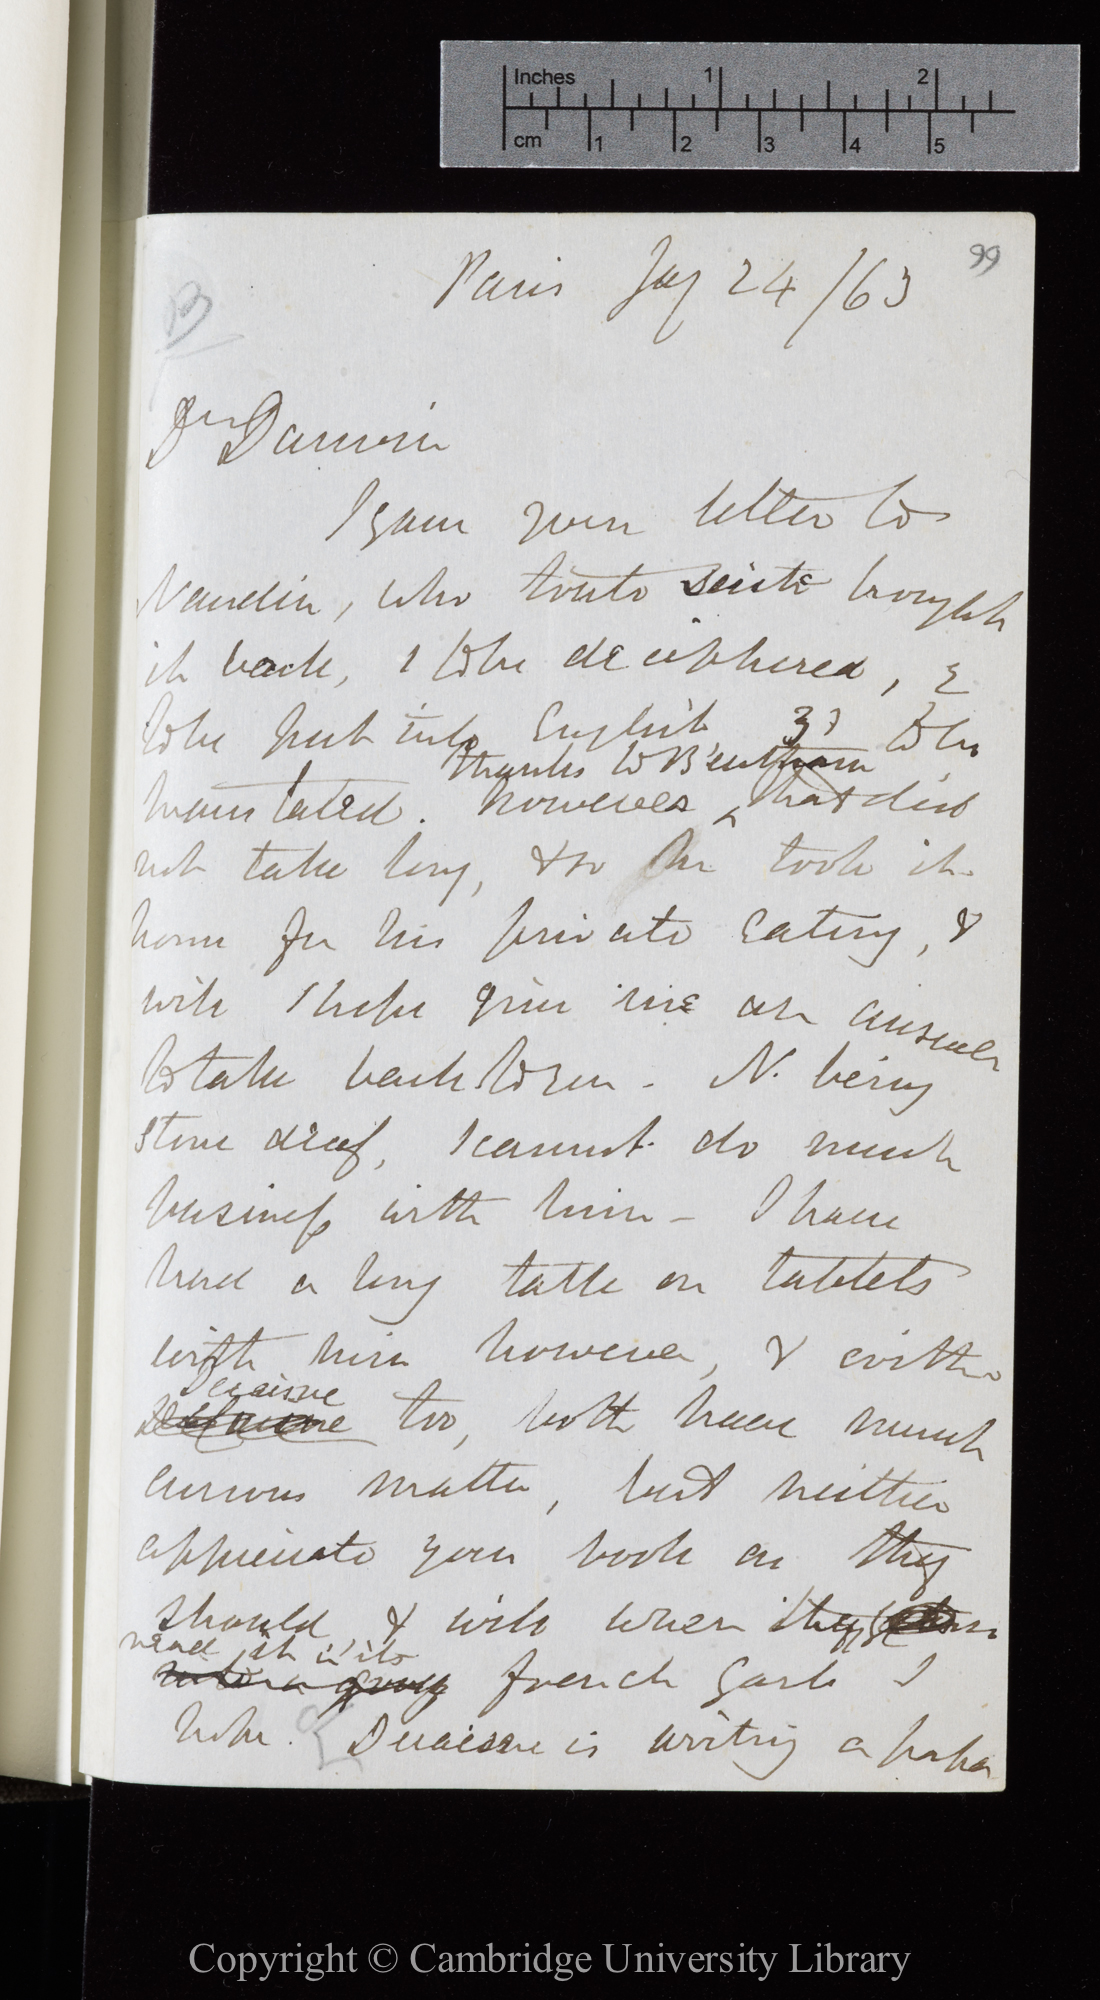 Inches 1 2
cm 1 2 3 4 5
99
Paris Jay 24/63
Dr Darwin
I gave your letter to
Naudin, who toute suite brought
it back, 1 to be deciphered, 2
to be put into English 3d to be
thanks to Bentham
translated. however, that did
not take long, & so he took it
home for his private eating, &
will I hope give me an answer
to take back to you. N. being
stone deaf, I cannot do much
business with him – I have
had a long talk on tablets
with him however, & with
Decaisne
too, both have much
curious matter, but neither
appreciate your book as they
should, & will when they
read it in its
french garb I
hope. Decaisne is writing a paper
Copyright © Cambridge University Library